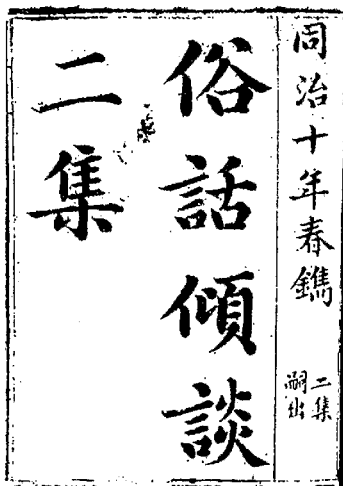 同治十年春鐫
二集
嗣出
俗話傾談
二集